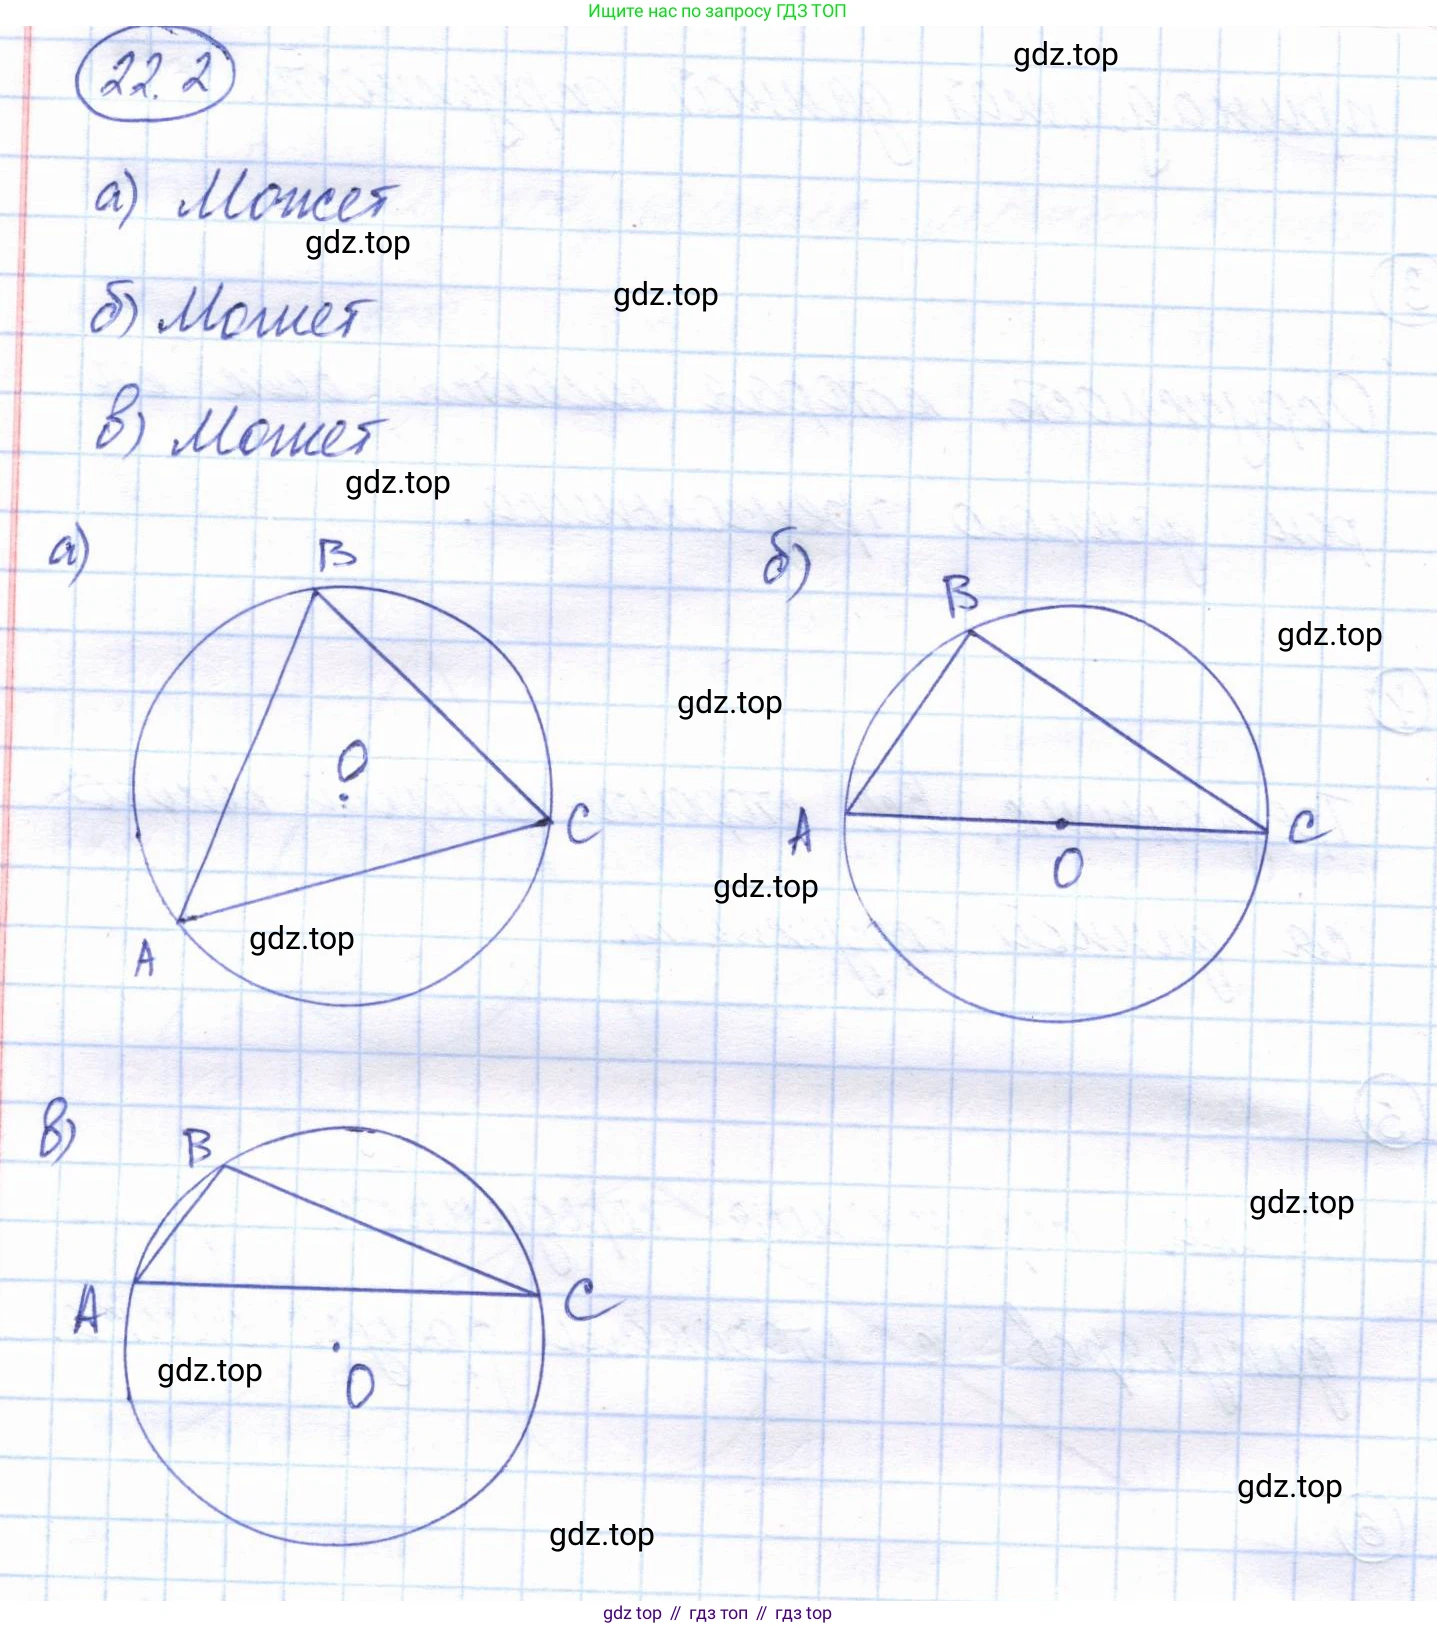 Ищите нас по запросу ГДЗ ТОП
22.2
gdz.top
а) Может
gdz.top
gdz.top
б) Может
в) Может
gdz.top
а)
B
б)
B
gdz.top
gdz.top
O
A
C
C
O
gdz.top
gdz.top
A
в)
B
gdz.top
A
C
gdz.top
O
gdz.top
gdz.top
gdz top // гдз топ // гдз top